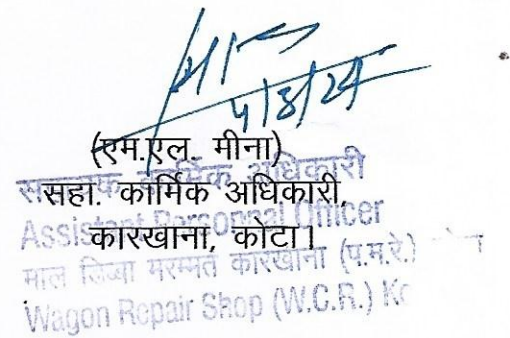 5/8/24
(एम.एल. मीना)
सहायक कार्मिक अधिकारी
सहा. कार्मिक अधिकारी,
Assistant Personnal Officer
कारखाना, कोटा।
माल डिब्बा मरम्मत कारखाना (प.म.रे.)
Wagon Repair Shop (W.C.R.)